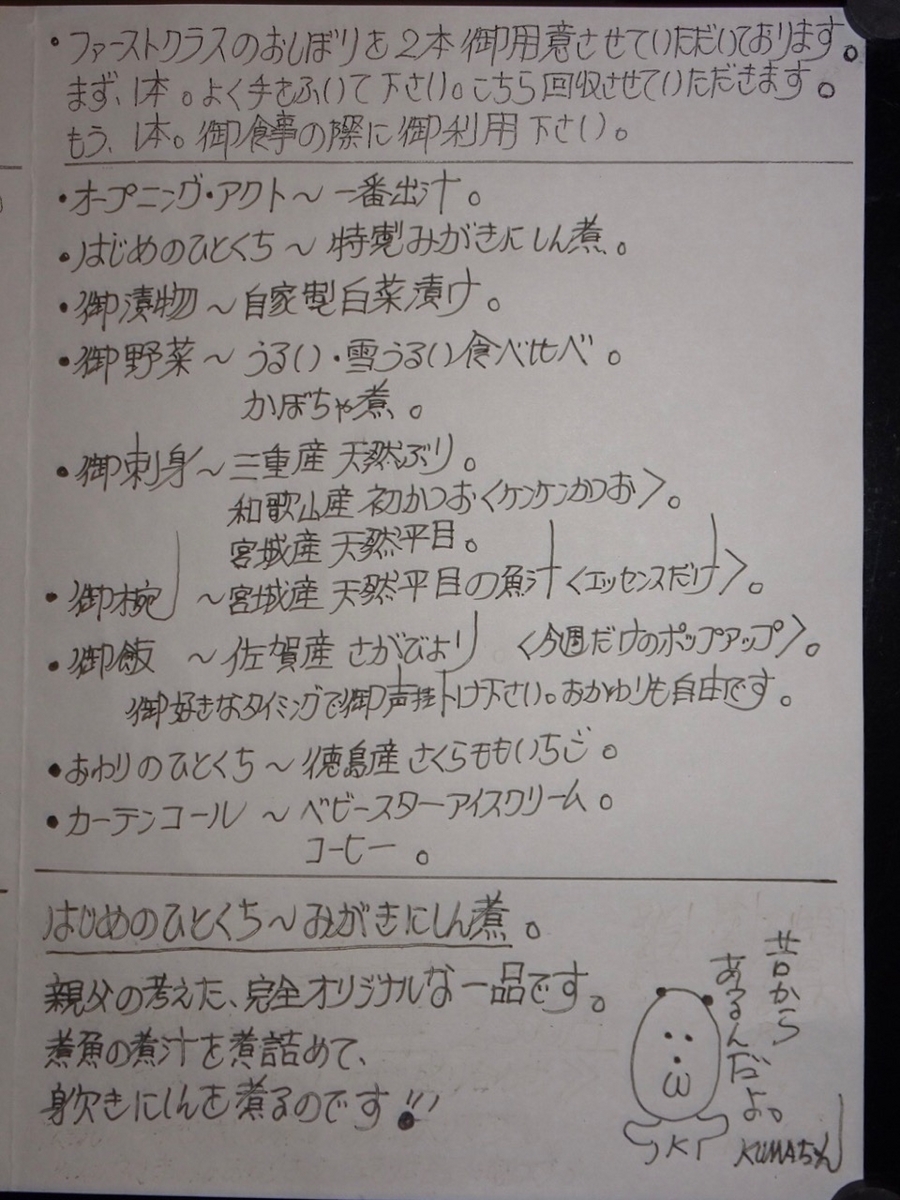 ・ファーストクラスのおしぼりを2本御用意させていただいております。
まず、1本。よく手をふいて下さい。こちら回収させていただきます。
もう、1本。御食事の際に御利用下さい。
・オープニング・アクト～一番出汁。
・はじめのひとくち～特製みがきにしん煮。
・御漬物～自家製白菜漬け。
・御野菜～うるい・雪うるい食べ比べ。
かぼちゃ煮。
・御刺身～三重産 天然ぶり。
和歌山産 初かつお〈ケンケンかつお〉。
宮城産 天然平目。
・御椀～宮城産 天然平目の魚汁〈エッセンスだけ〉。
・御飯～佐賀産 さがびより〈今週だけのポップアップ〉。
御好きなタイミングで御声掛け下さい。おかわりも自由です。
・おわりのひとくち～徳島産 さくらももいちご。
・カーテンコール～ベビースターアイスクリーム。
コーヒー。
はじめのひとくち～みがきにしん煮。
親父の考えた、完全オリジナルな一品です。
煮魚の煮汁を煮詰めて、
身欠きにしんを煮るのです!!!
昔から
あるんだよ。
KUMAちゃん